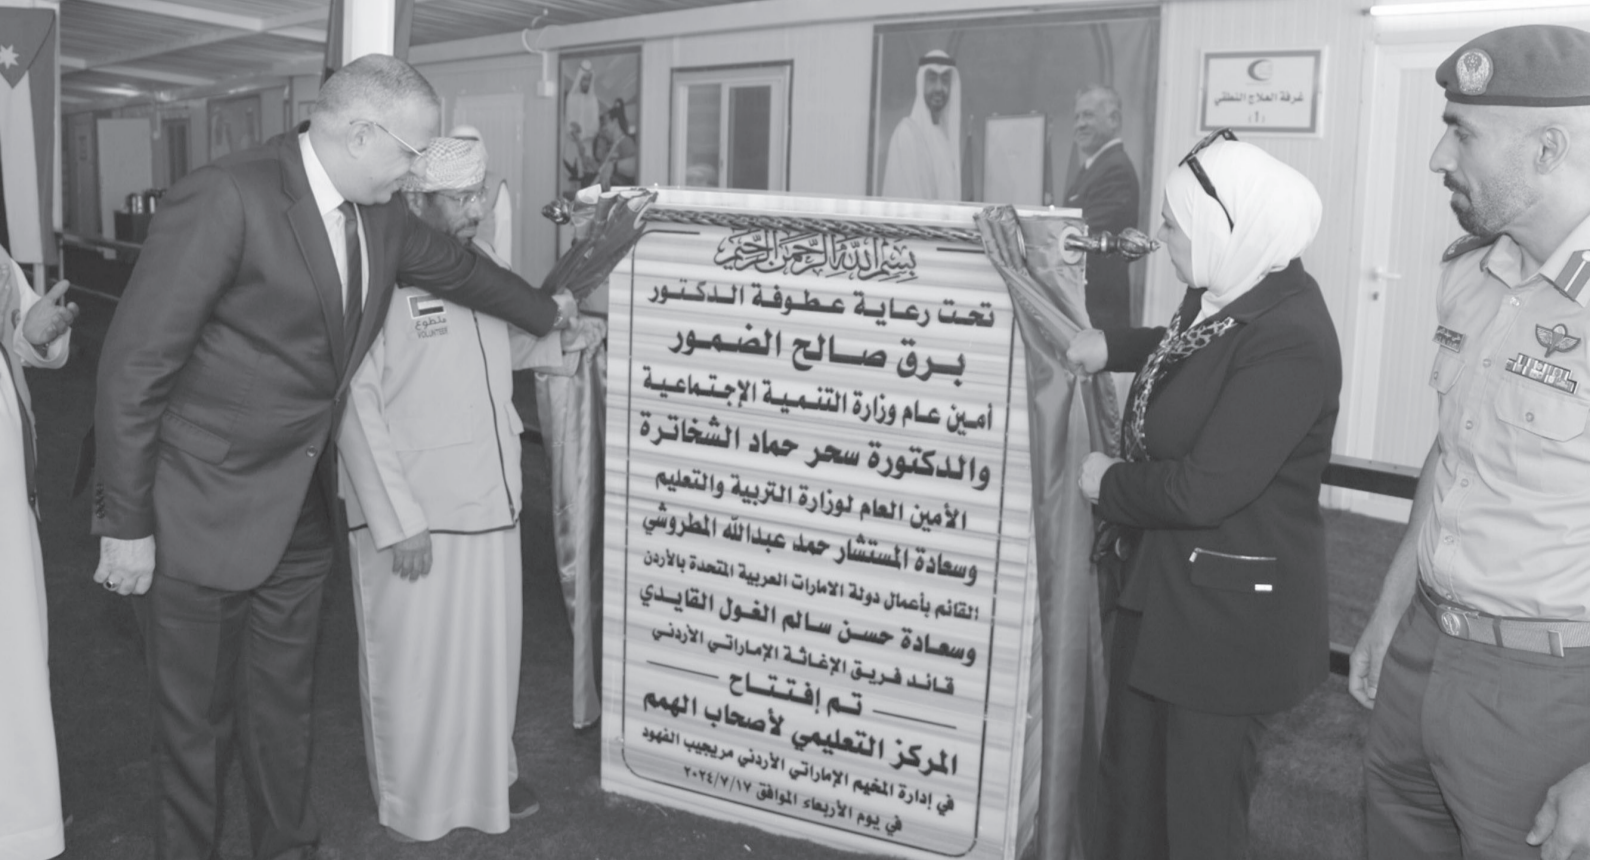 غرفة العلاج النطقي
(1)
متطوع
VOLUNTEER
بسم الله الرحمن الرحيم
تحت رعاية عطوفة الدكتور
برق صالح الضمور
أمين عام وزارة التنمية الإجتماعية
والدكتورة سحر حماد الشخاترة
الأمين العام لوزارة التربية والتعليم
وسعادة المستشار حمد عبدالله المطروشي
القائم بأعمال دولة الامارات العربية المتحدة بالأردن
وسعادة حسن سالم الغول القايدي
قائد فريق الإغاثة الإماراتي الأردني
تم إفتتاح
المركز التعليمي لأصحاب الهمم
في إدارة المخيم الإماراتي الأردني مريجيب الفهود
في يوم الأربعاء الموافق ٢٠٢٤/٧/١٧